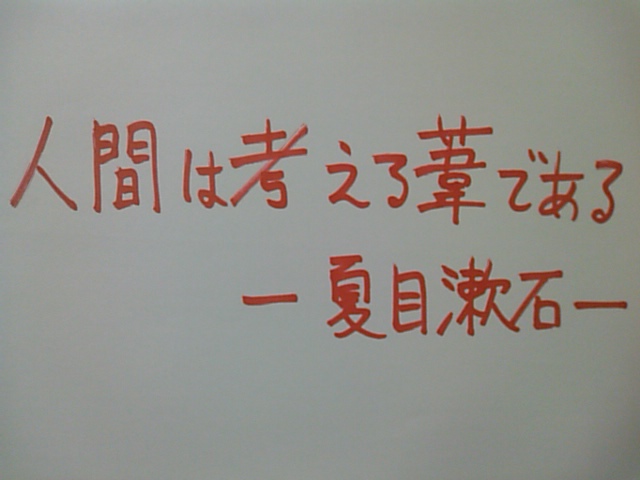 人間は考える葦である
ー夏目漱石ー